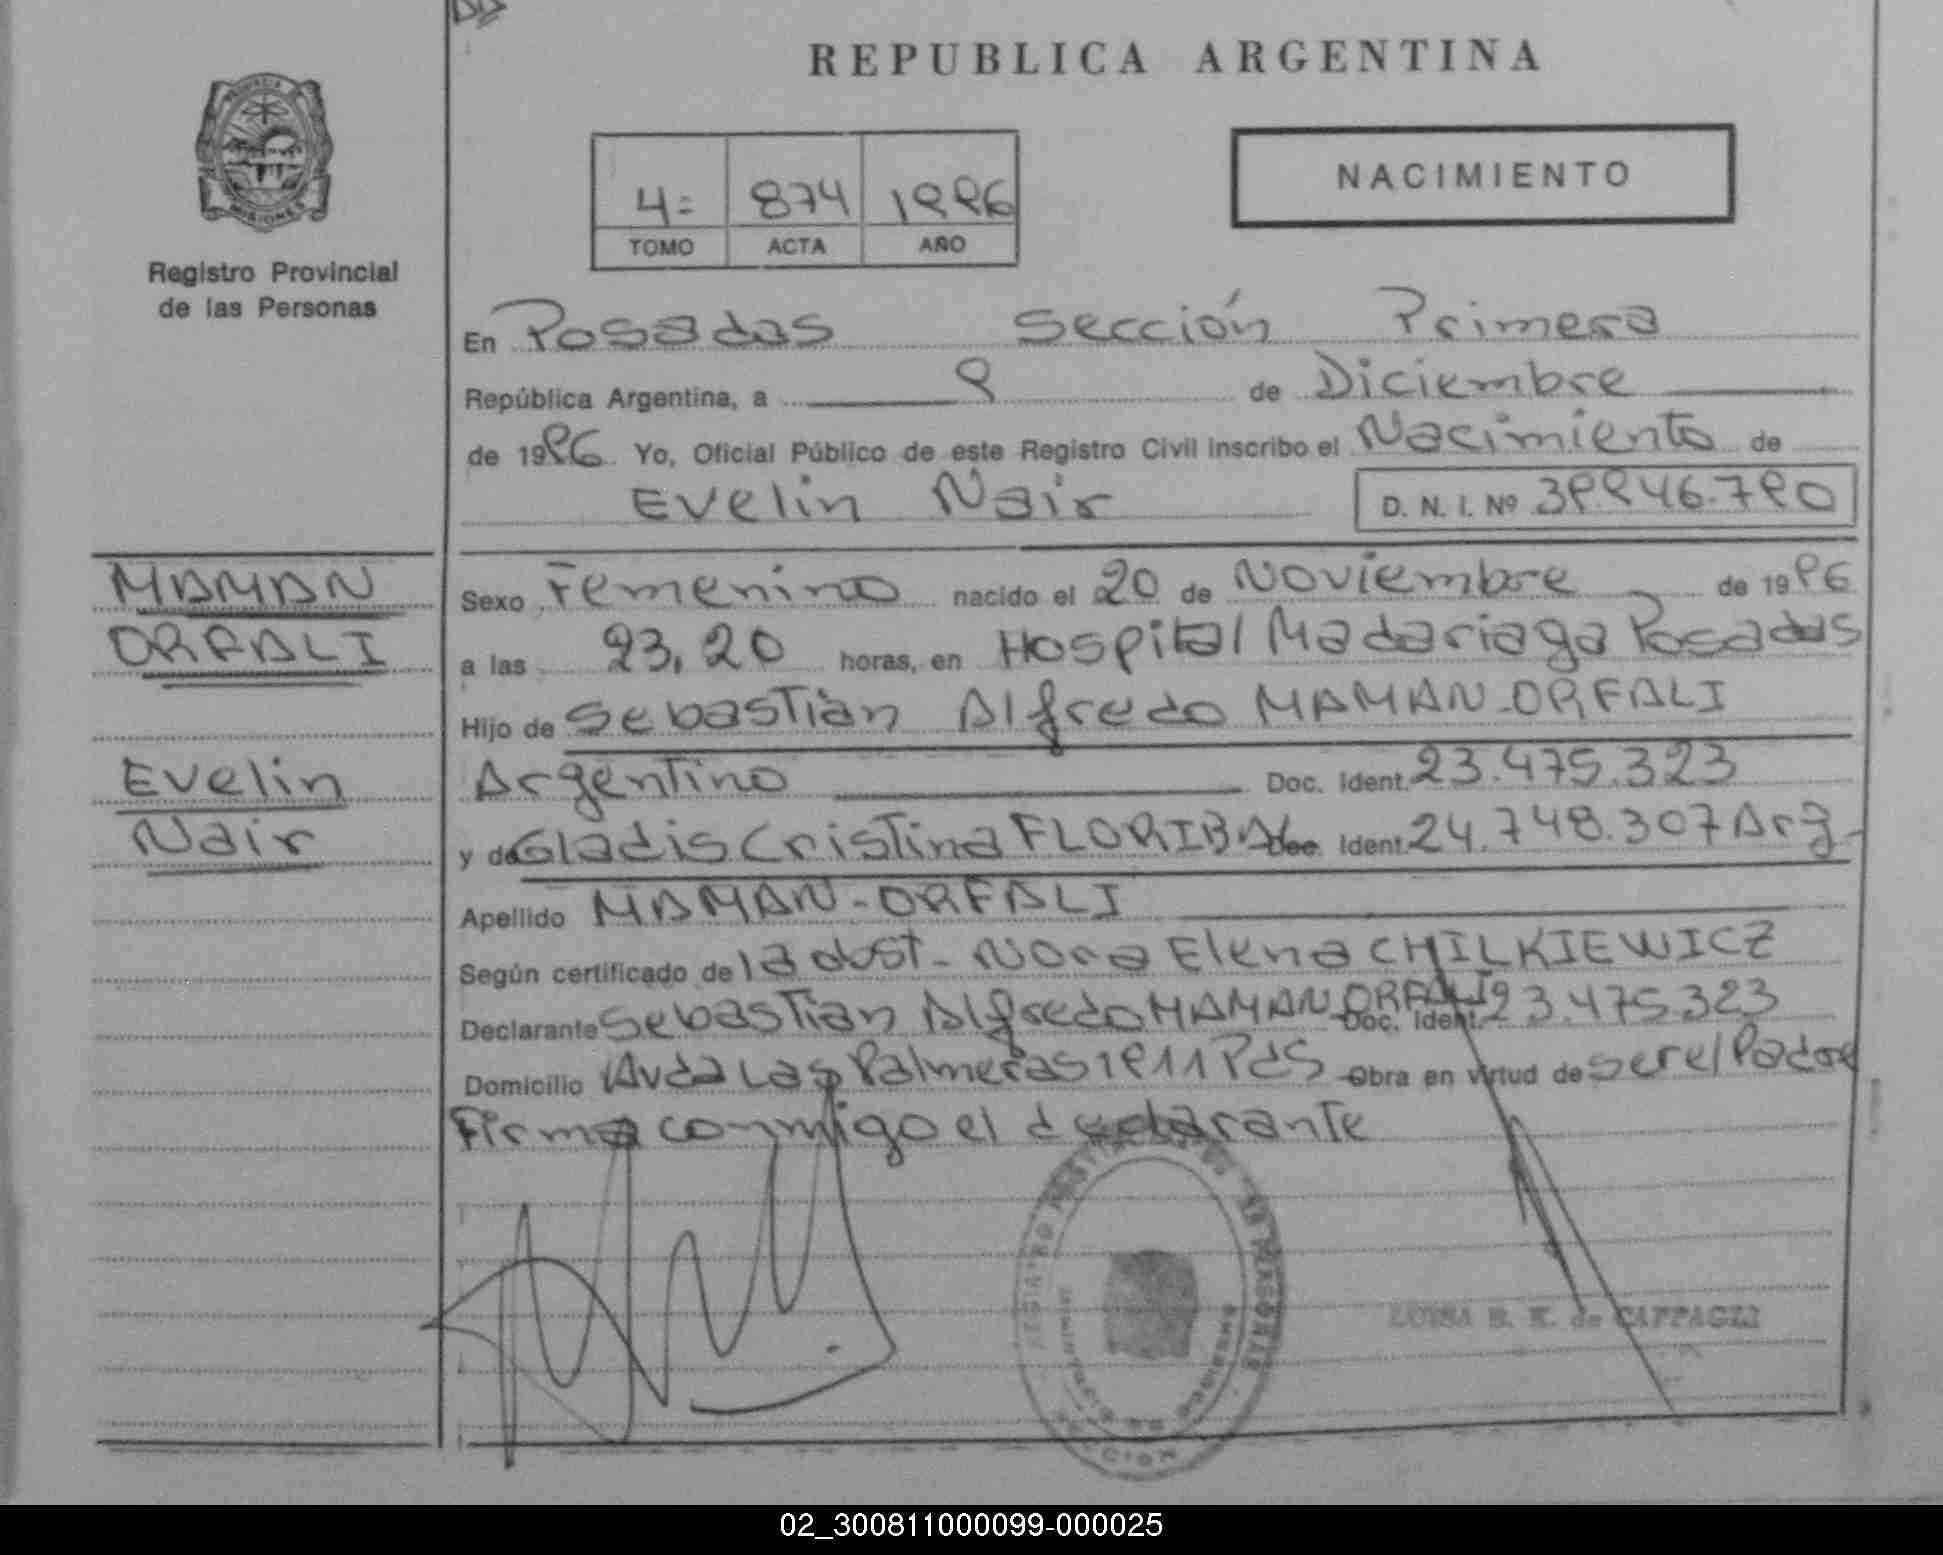 REPUBLICA ARGENTINA
PROVINCIA DE MISIONES
Registro Provincial
de las Personas
4= 874 1996
TOMO ACTA AÑO
NACIMIENTO
En Posadas Sección Primera
República Argentina, a 9 de Diciembre
de 1996 Yo, Oficial Público de este Registro Civil inscribo el Nacimiento de
Evelin Nair D. N. I. Nº 39.946.790
MAMAN
ORFALI
Evelin
Nair
Sexo Femenino nacido el 20 de Noviembre de 1996
a las 23,20 horas, en Hospital Madariaga Posadas
Hijo de Sebastián Alfredo MAMAN-ORFALI
Argentino Doc. Ident. 23.475.323
y de Gladis Cristina FLORIBAL Doc. Ident. 24.748.307 Arg-
Apellido MAMAN-ORFALI
Según certificado de la obst- Nora Elena CHILKIEWICZ
Declarante Sebastian Alfredo MAMAN-ORFALI Doc. Ident. 23.475.323
Domicilio Avda Las Palmeras 1911 Pdas Obra en virtud de ser el Padre
Firma conmigo el declarante
LUISA B. K. de CAPPAGLI
02_300811000099-000025